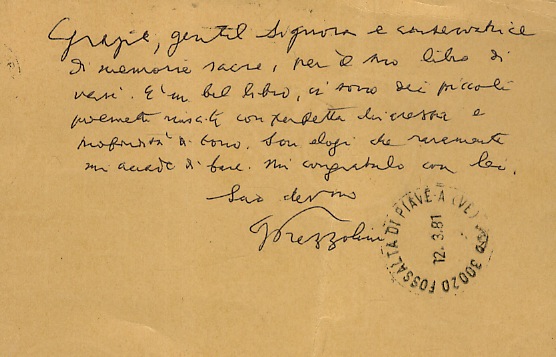 Grazie, gentil Signora e conservatrice
di memorie sacre, per il suo libro di
versi. È un bel libro, ci sono dei piccoli
poemetti riusciti con perfetta limpidezza e
profondità di tono. Son elogi che raramente
mi accade di fare. Mi congratulo con lei.
Suo dev.mo
Prezzolini
30020 FOSSALTA DI PIAVE A (VE)
12.3.81